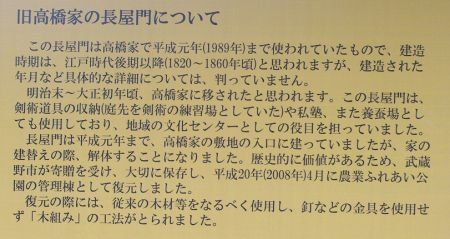 旧高橋家の長屋門について
この長屋門は高橋家で平成元年(1989年)まで使われていたもので、建造
時期は、江戸時代後期以降(1820～1860年頃)と思われますが、建造された
年月など具体的な詳細については、判っていません。
明治末～大正初年頃、高橋家に移されたと思われます。この長屋門は、
剣術道具の収納(庭先を剣術の練習場としていた)や私塾、また養蚕場とし
ても使用しており、地域の文化センターとしての役目を担っていました。
長屋門は平成元年まで、高橋家の敷地の入口に建っていましたが、家の
建替えの際、解体することになりました。歴史的に価値があるため、武蔵
野市が寄贈を受け、大切に保存し、平成20年(2008年)4月に農業ふれあい公
園の管理棟として復元しました。
復元の際には、従来の木材等をなるべく使用し、釘などの金具を使用せ
ず「木組み」の工法がとられました。